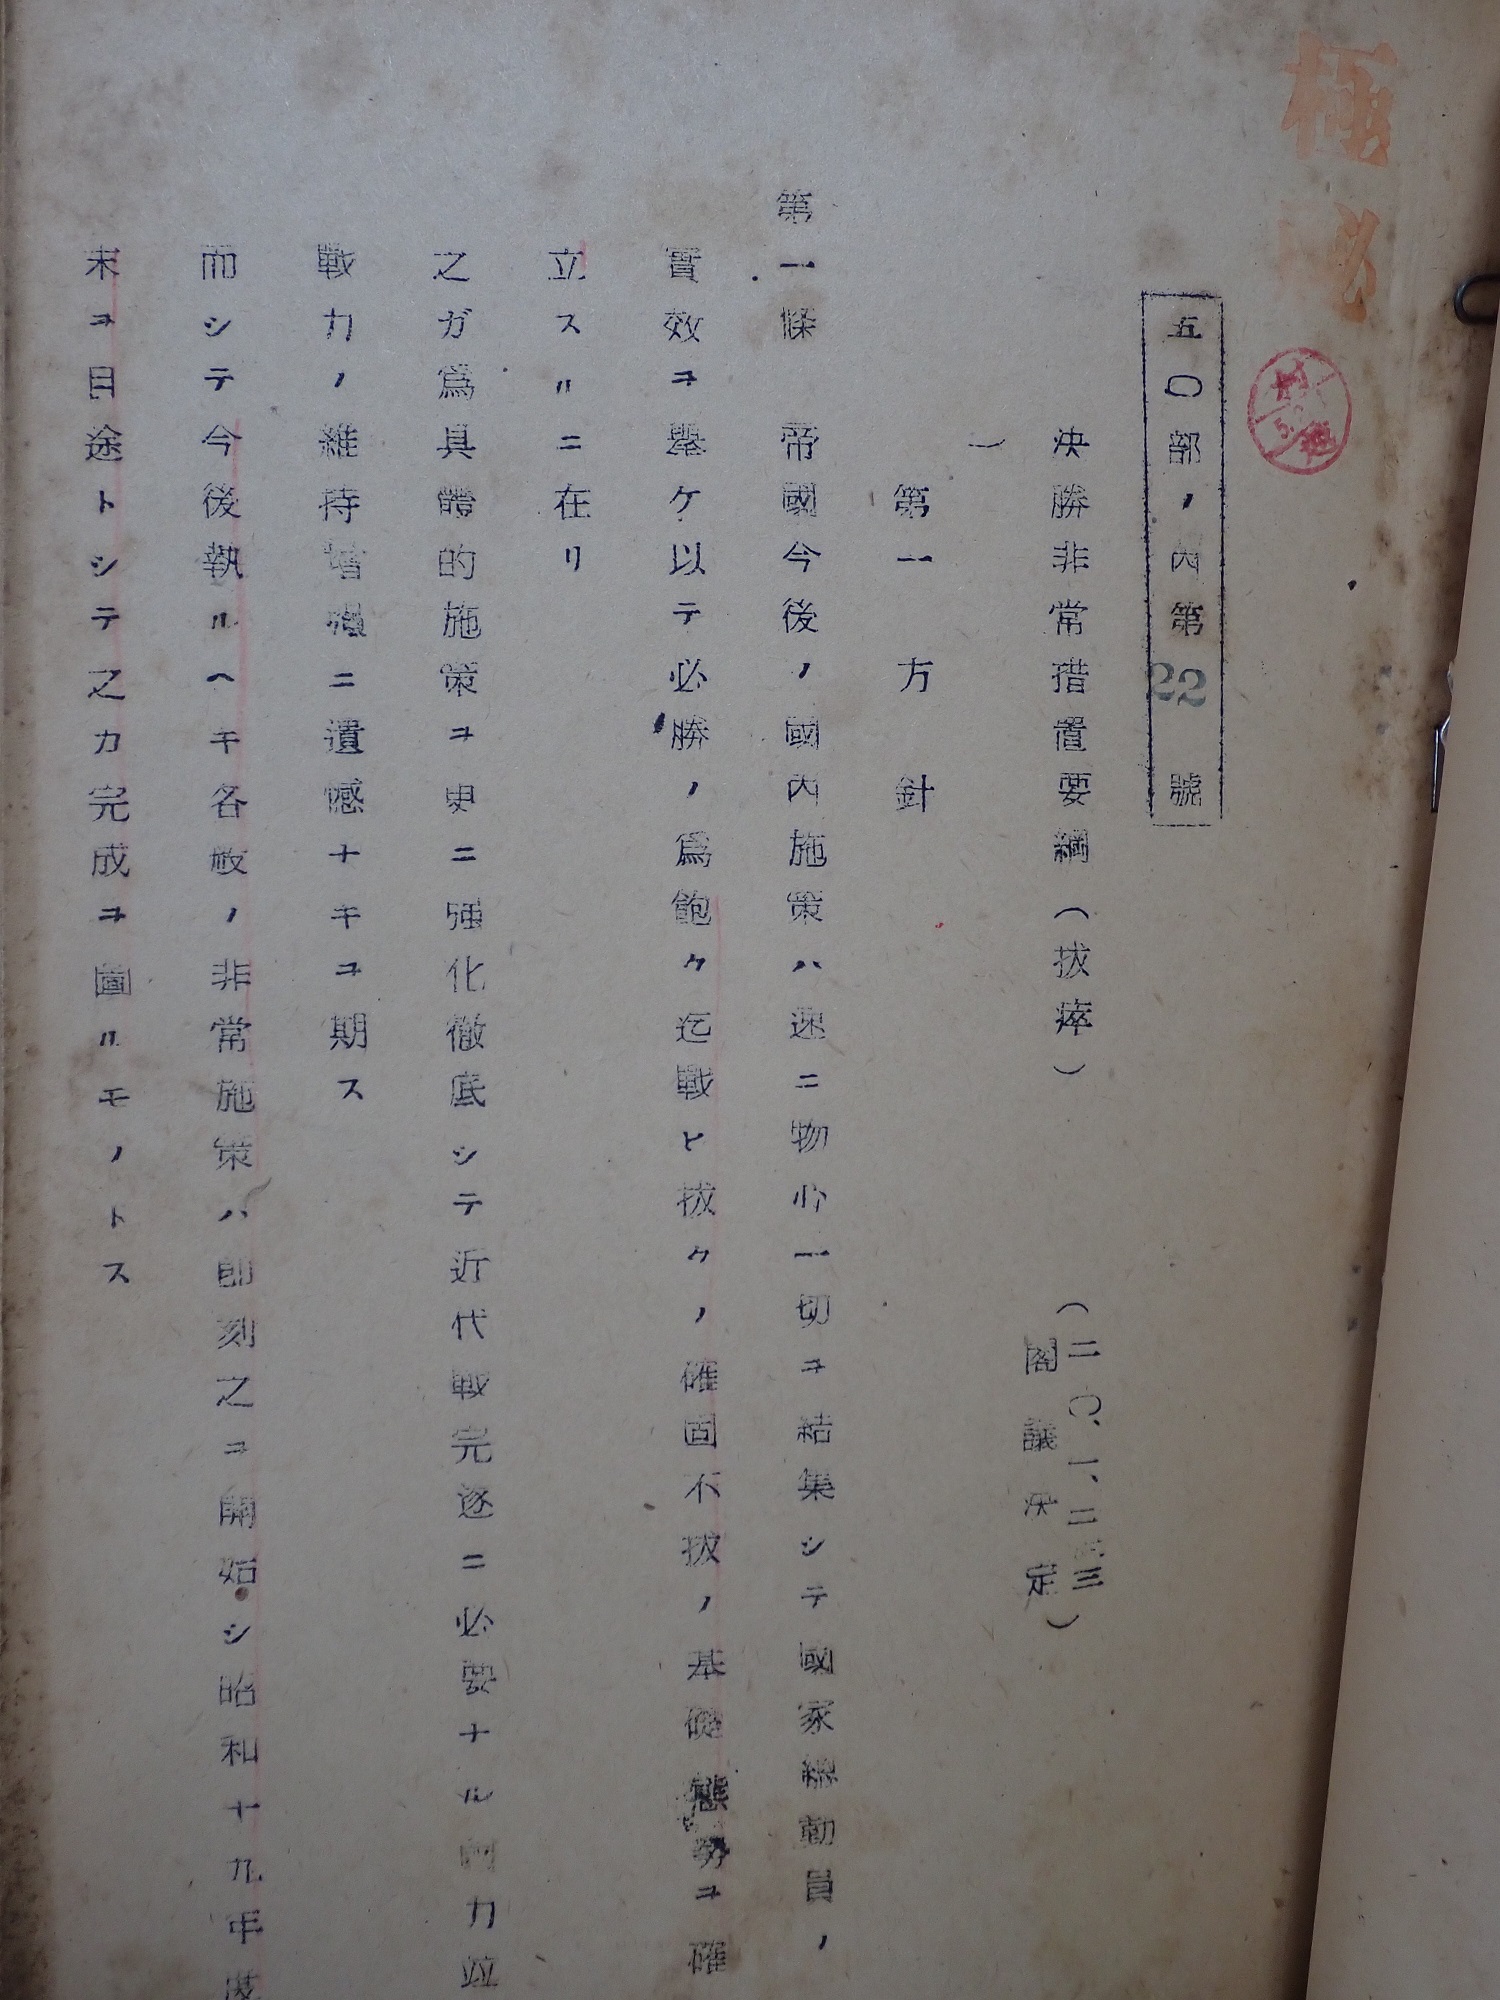 極秘
五〇部ノ內第22號
決勝非常措置要綱(拔瘁)
(二〇、一、二三)
閣議決定
第一 方針
第一條 帝國今後ノ國內施策ハ速ニ物心一切ヲ結集シテ國家總動員ノ
實效ヲ擧ケ以テ必勝ノ爲飽ク迄戰ヒ拔クノ確固不拔ノ基礎態勢ヲ確
立スルニ在リ
之ガ爲具體的施策ヲ更ニ强化徹底シテ近代戰完遂ニ必要ナル國力竝
戰力ノ維持增强ニ遺憾ナキヲ期ス
而シテ今後執ルヘキ各般ノ非常施策ハ卽刻之ヲ開始シ昭和十九年度
末ヲ目途トシテ之カ完成ヲ圖ルモノトス